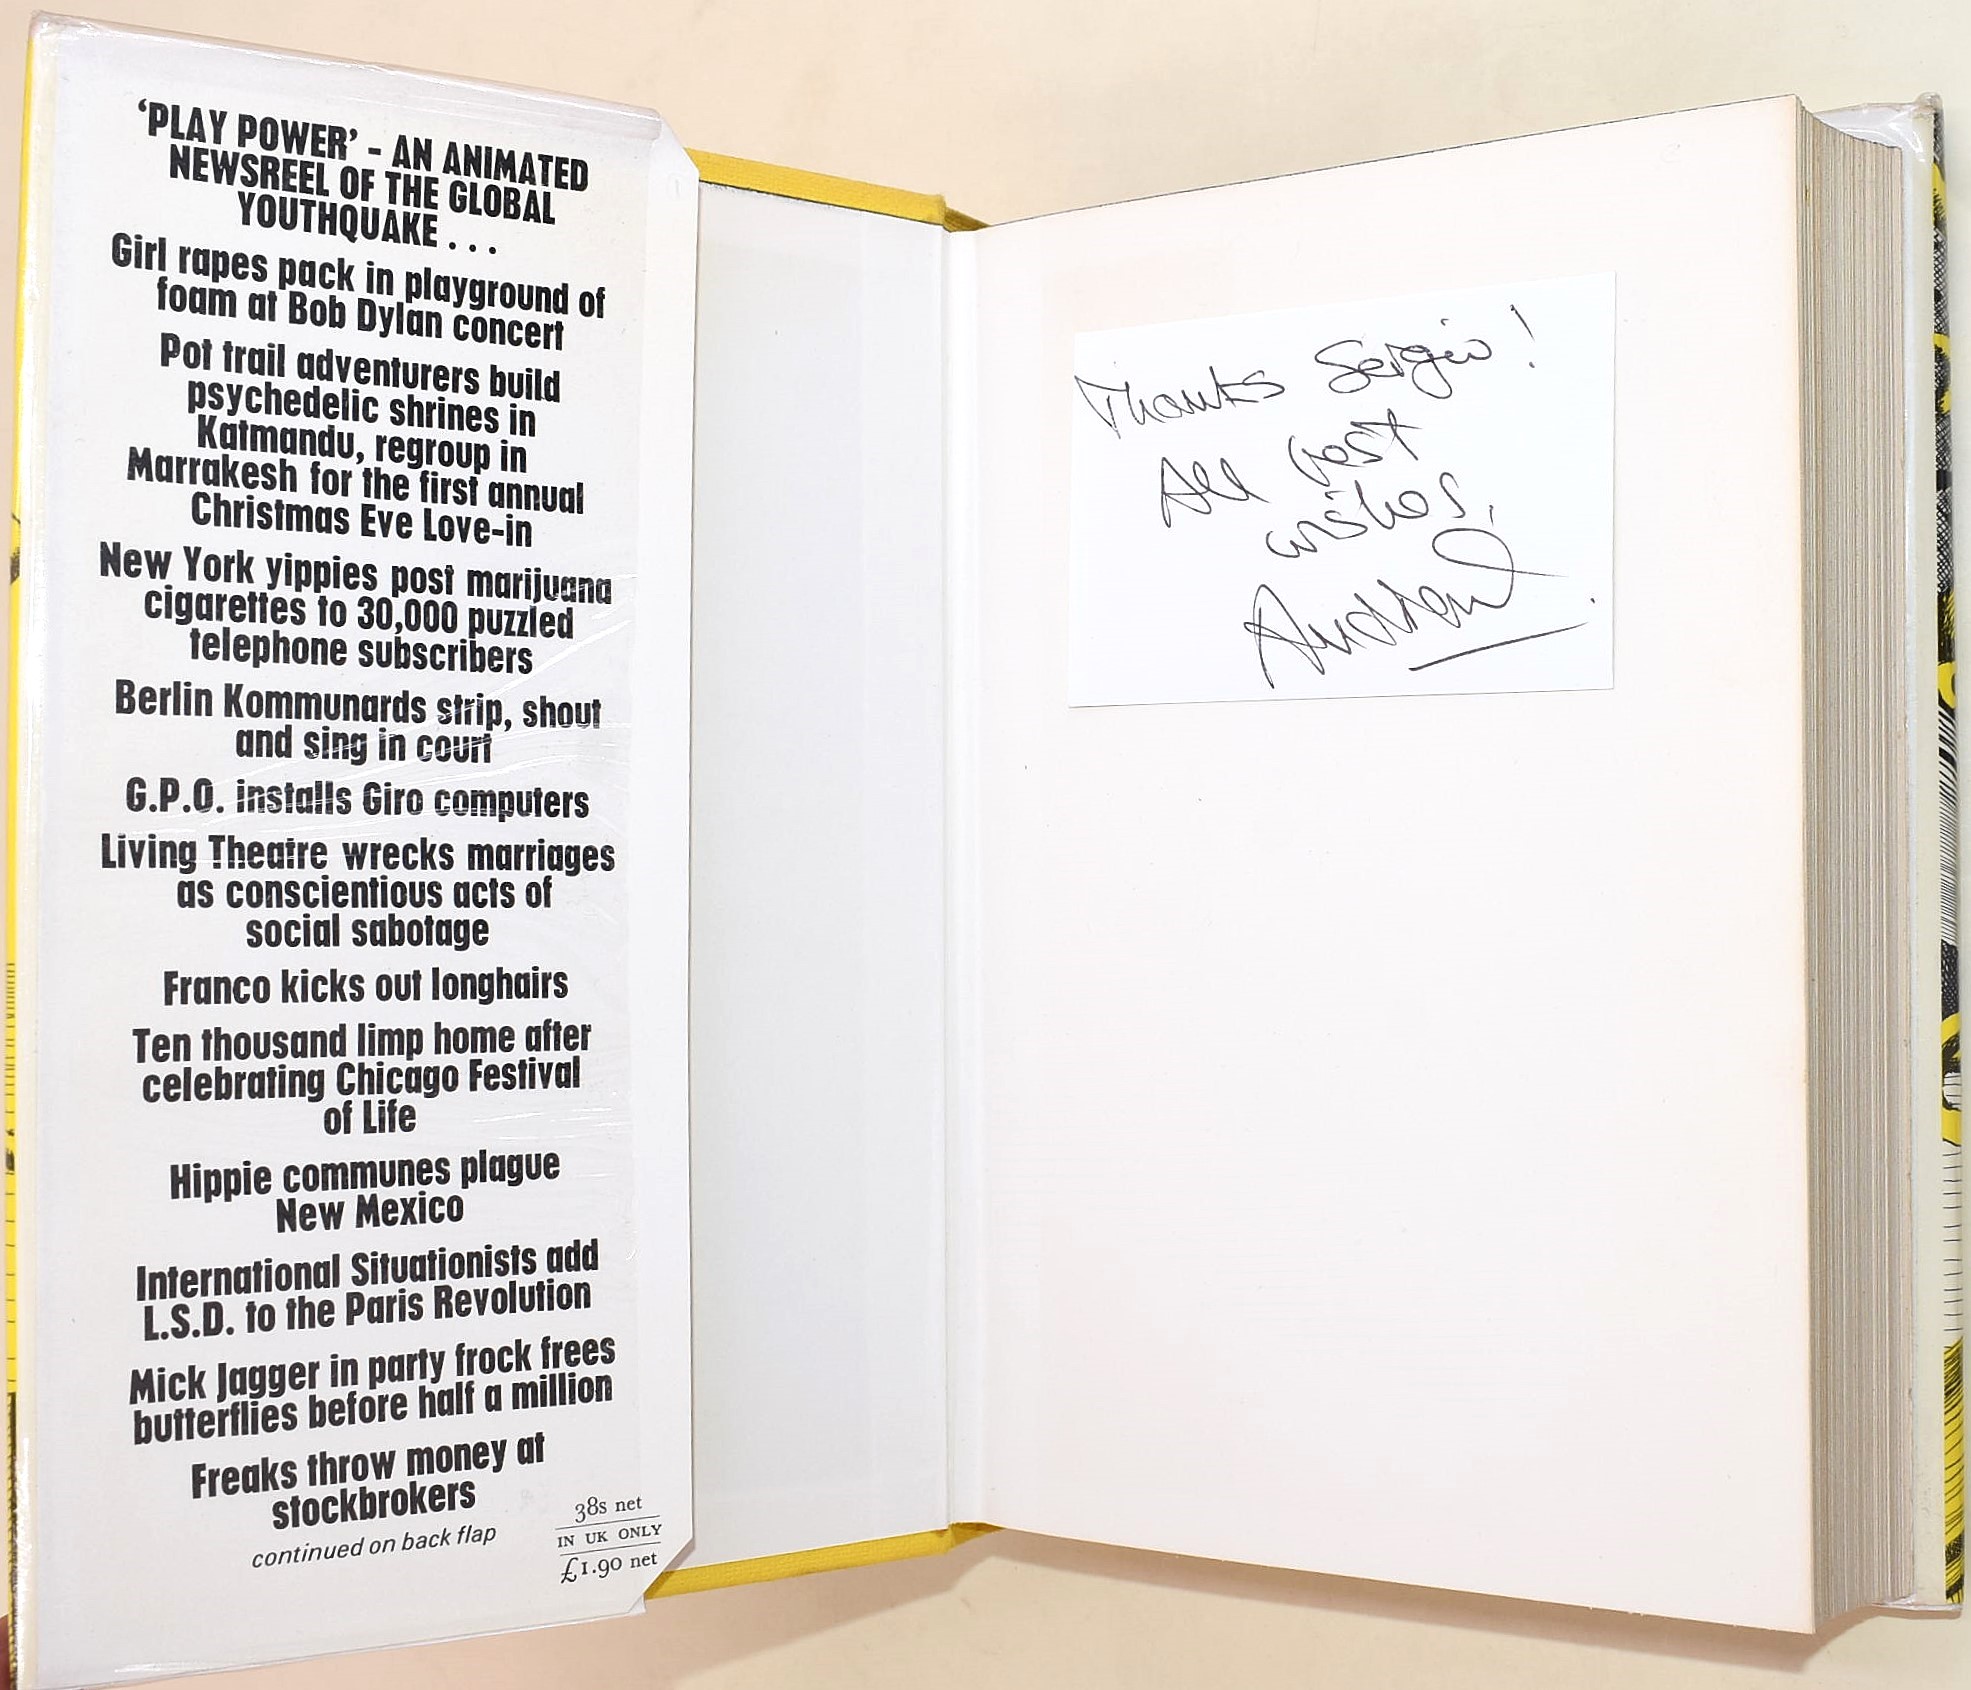 ‘PLAY POWER’ – AN ANIMATED
NEWSREEL OF THE GLOBAL
YOUTHQUAKE . . .
Girl rapes pack in playground of
foam at Bob Dylan concert
Pot trail adventurers build
psychedelic shrines in
Katmandu, regroup in
Marrakesh for the first annual
Christmas Eve Love-in
New York yippies post marijuana
cigarettes to 30,000 puzzled
telephone subscribers
Berlin Kommunards strip, shout
and sing in court
G.P.O. installs Giro computers
Living Theatre wrecks marriages
as conscientious acts of
social sabotage
Franco kicks out longhairs
Ten thousand limp home after
celebrating Chicago Festival
of Life
Hippie communes plague
New Mexico
International Situationists add
L.S.D. to the Paris Revolution
Mick Jagger in party frock frees
butterflies before half a million
Freaks throw money at
stockbrokers
continued on back flap
38s net
IN UK ONLY
£1.90 net
Thanks Sergio!
All best
wishes,